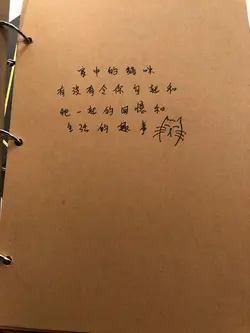 書中的貓咪
有沒有令你勾起和
他一起的回憶和
生活的趣事